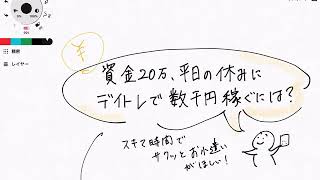 ¥
資金20万、平日の休みに
デイトレで数千円稼ぐには?
スキマ時間で
サクッとお小遣い
がほしい!
レイヤー